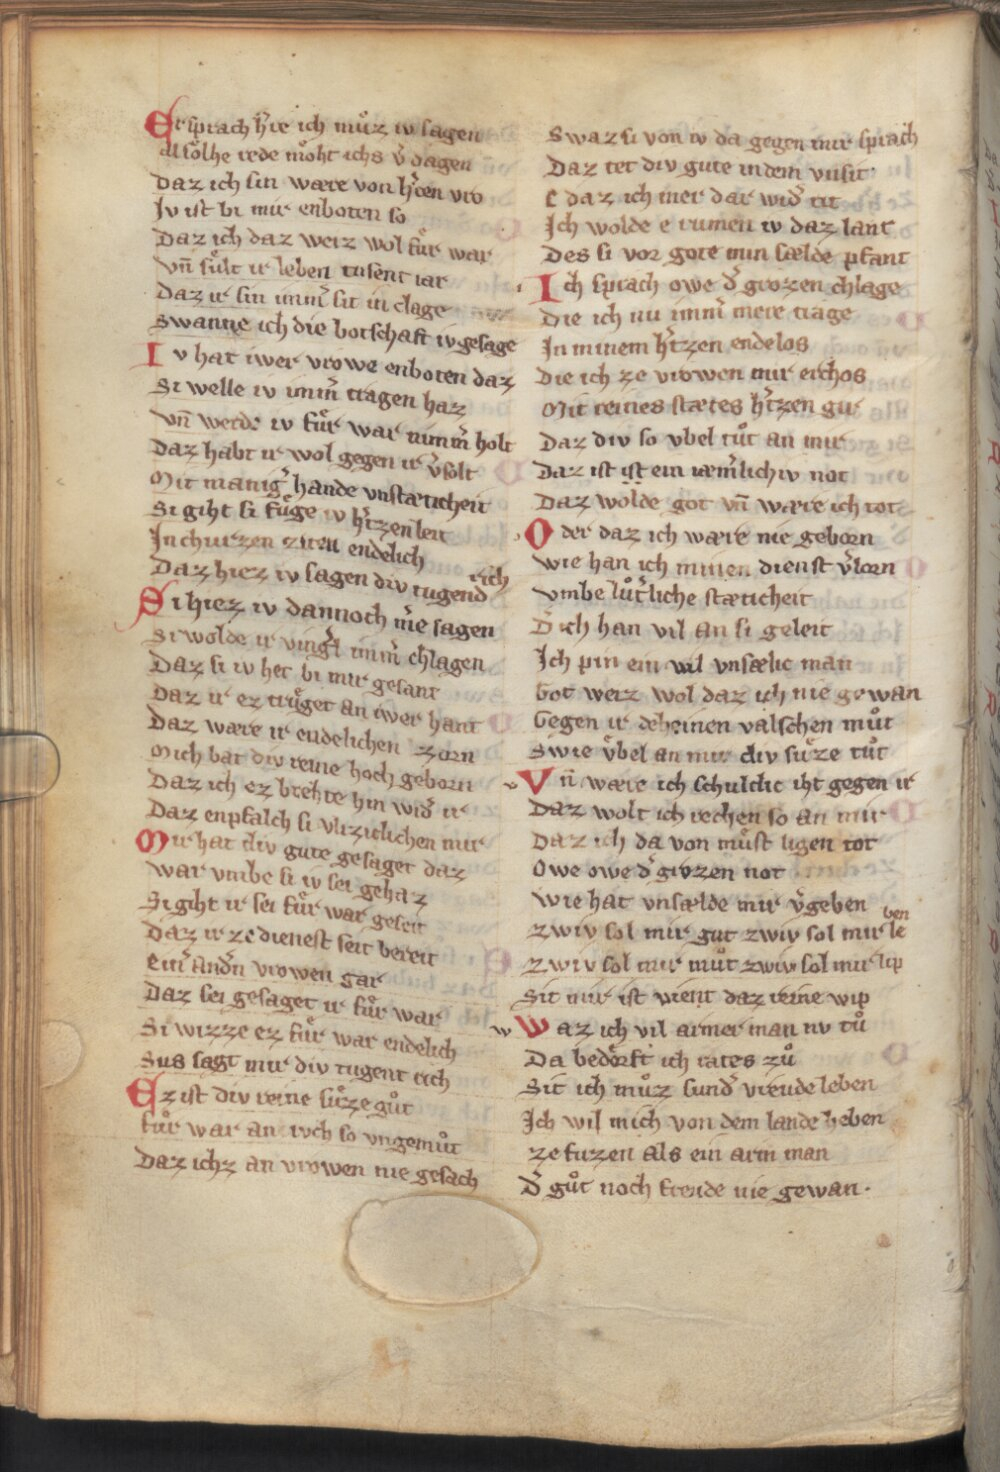 Er sprach h̾re ich muͦz iv sagen
Al solhe rede moͤht ichs v̾dagen
Daz ich sin wære von h̾cen vro
Iv ist bi mir enboten so
Daz ich daz weiz wol fuͤr war
Vn̄ suͤlt ir leben tusent iar
Daz ir sin imm̾ sit in clage
Swanne ich die botschaft iv gesage
Iv hat iwer vrowe enboten daz
Si welle iv imm̾ tragen haz
Vn̄ werde iv fuͤr war nimm̾ holt
Daz habt ir wol gegen ir v̾solt
Mit manig̾ hande vnstæticheit
Si giht si fuͤge iv h̾tzen leit
In churzen ziten endelich
Daz hiez iv sagen div tugend rich
Si hiez iv dannoch m̾e sagen
Si wolde ir ving̾l imm̾ chlagen
Daz si iv her bi mir gesant
Daz ir ez truͤget an iwer hant
Daz wære ir endelichen zorn
Mich bat div reine hoch geborn
Daz ich ez brehte hin wid̾ ir
Daz enpfalch si vlizichlichen mir
Mir hat div gute gesaget daz
War vmbe si iv sei gehaz
Si giht ir sei fuͤr war geseit
Daz ir ze dienest seit bereit
Ein̾ and̾n vrowen gar
Daz sei gesaget ir fuͤr war
Si wizze ez fuͤr war endelich
Sus sagt mir div tugent rich
Ez ist div reine suͤze guͦt
fuͤr war an ivch so vngemuͦt
Daz ichz an vrowen nie gesach
Swaz si von iv da gegen mir sprach
Daz tet div gute in dem vnsit
E daz ich mer dar wid̾ rit
Ich wolde e rumen iv daz lant
Des si vor gote min sælde pfant
Ich sprach owe d̾ grozen chlage
Die ich nu imm̾ mere trage
In minem h̾tzen endelos
Die ich ze vrowen mir erchos
Mit reines stætes h̾tzen gir
Daz div so vbel tuͦt an mir
Daz ist ist ein iæm̾lichiv not
Daz wolde got vn̄ wære ich tot
Oder daz ich wære nie geborn
Wie han ich minen dienst v̾lorn
Vmbe luͦt̾liche stæticheit
D̾ ich han vil an si geleit
Ich pin ein vil vnsælic man
Got weiz wol daz ich nie gewan
Gegen ir deheinen valschen muͦt
Swie vͤbel an mir div suͤze tuͦt
Vn̄ wære ich schuldic iht gegen ir
Daz wolt ich rechen so an mir
Daz ich da von muͤst ligen tot
Owe owe d̾ grozen not
Wie hat vnsælde mir v̾geben
Zwiv sol mir gut zwiv sol mir leben
Zwiv sol mir muͦt zwiv sol mir lip
Sit mir ist vient daz reine wip
Waz ich vil armer man nv tuͦ
Da bedoͤrft ich rates zuͦ
Sit ich muͦz sund̾ vreude leben
Ich wil mich von dem lande heben
Ze fuzen als ein arm man
D̾ guͦt noch freude nie gewan.